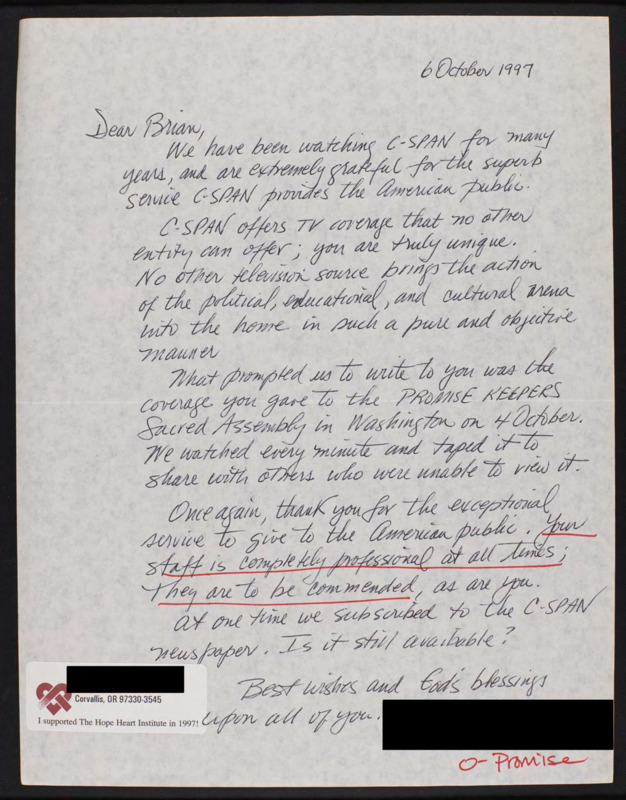 6 October 1997
Dear Brian,
We have been watching C-SPAN for many
years, and are extremely grateful for the superb
service C-SPAN provides the American public.
C-SPAN offers TV coverage that no other
entity can offer; you are truly unique.
No other television source brings the action
of the political, educational, and cultural arena
into the home in such a pure and objective
manner
What prompted us to write to you was the
coverage you gave to the PROMISE KEEPERS
Sacred Assembly in Washington on 4 October.
We watched every minute and taped it to
share with others who were unable to view it.
Once again, thank you for the exceptional
service to give to the American public. Your
staff is completely professional at all times;
they are to be commended, as are you.
At one time we subscribed to the C-SPAN
newspaper. Is it still available?
Best wishes and God's blessings
upon all of you.
Corvallis, OR 97330-3545
I supported The Hope Heart Institute in 1997!
O- Promise